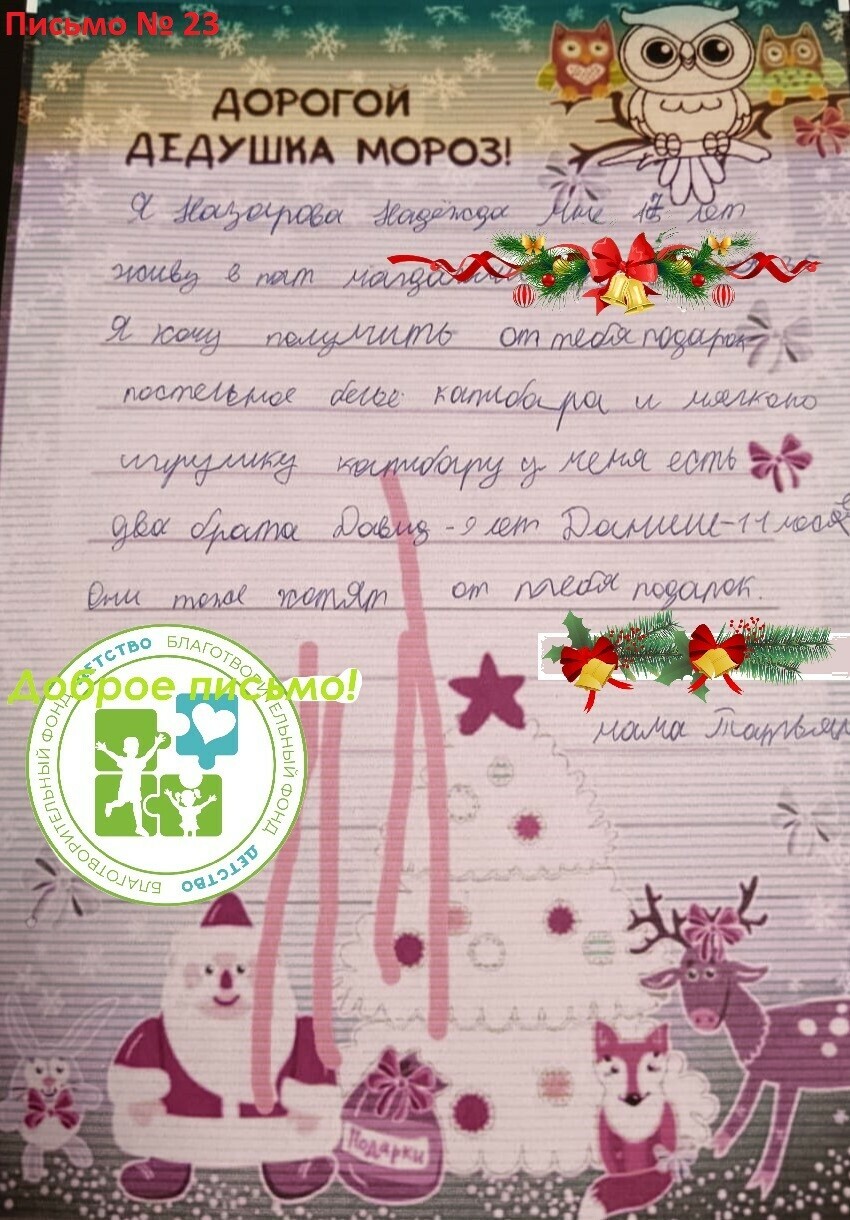 Письмо № 23
ДОРОГОЙ
ДЕДУШКА МОРОЗ!
Я Назарова Надежда мне 12 лет
живу в
Я хочу получить от тебя подарок
постельное бельё капибара и мягкаю
игрушку капибару у меня есть
два брата Давид - 9 лет Даниил - 11 меся
Они тоже хотят от тебя подарок.
Доброе письмо!
БЛАГОТВОРИТЕЛЬНЫЙ ФОНД ДЕТСТВО БЛАГОТВОРИТЕЛЬНЫЙ ФОНД ДЕТСТВО
мама
Подарки